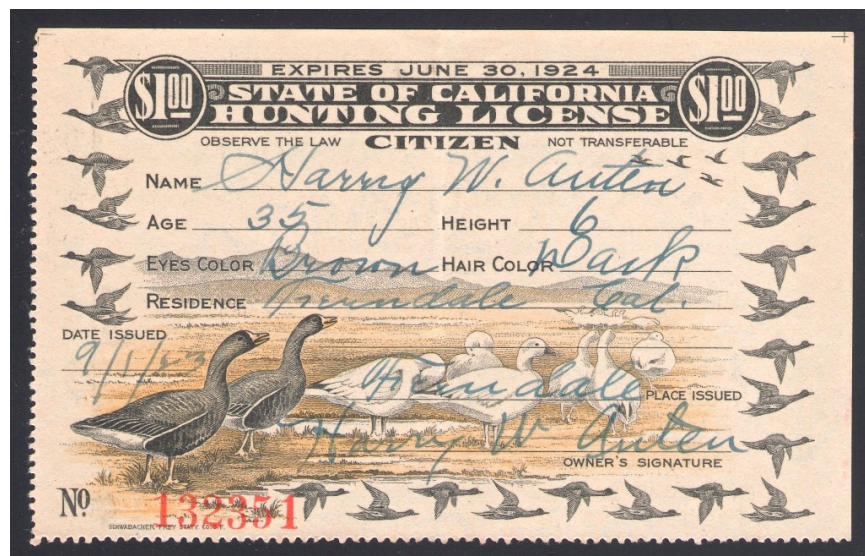 EXPIRES JUNE 30, 1924
$1.00 STATE OF CALIFORNIA $1.00
HUNTING LICENSE
OBSERVE THE LAW CITIZEN NOT TRANSFERABLE
NAME Harry W. Auten
AGE 35 HEIGHT 6
EYES COLOR Brown HAIR COLOR Dark
RESIDENCE Ferndale Cal.
DATE ISSUED
9/1/23
Ferndale PLACE ISSUED
Harry W Auten
OWNER'S SIGNATURE
No 132351